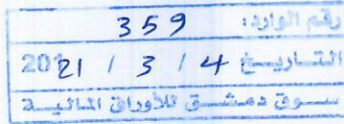 رقم الوارد: 359
التاريخ 4 / 3 / 2021
سوق دمشق للأوراق المالية